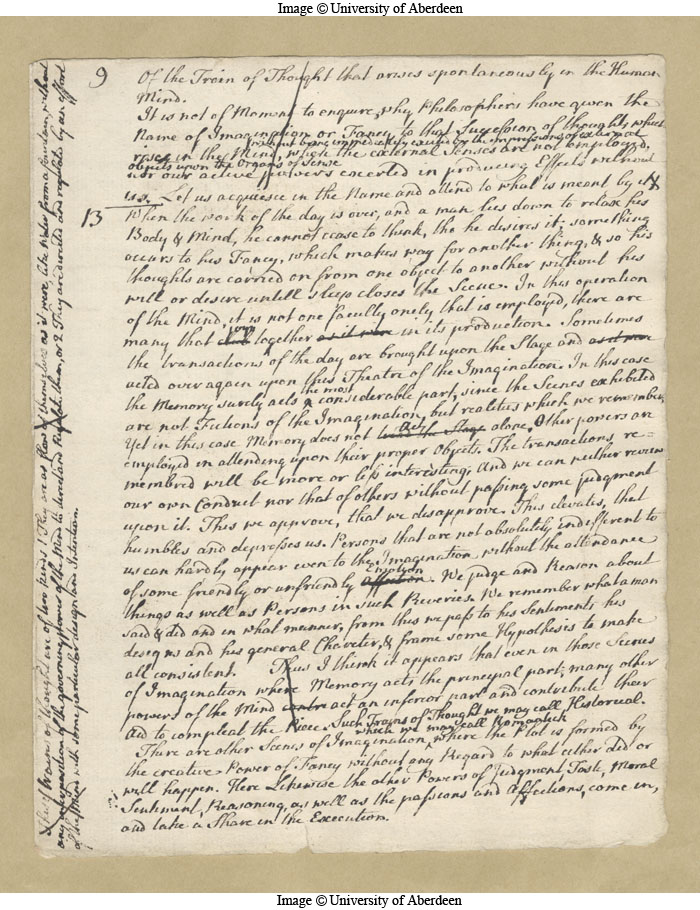 Image © University of Aberdeen
9
Of the Train of Thought that arises spontaneously in the Human
Mind.
It is not of Moment to enquire, why Philosophers have given the
Name of Imagination or Fancy to that Succession of thoughts which
without being immediately excited by the impressions of external
rises in the Mind, when the external Senses are not employed,
objects upon the Organs of Sense
nor our active powers exerted in producing Effects without
us. Let us acquiesce in the Name and attend to what is meant by it
13
When the work of the day is over, and a man lies down to relax his
Body & Mind, he cannot cease to think, tho he desires it; something
occurs to his Fancy, which makes way for another thing, & so his
thoughts are carried on from one object to another without his
will or desire untill sleep closes the Scene. In this operation
of the Mind, it is not one faculty onely that is employed, there are
many that join together as it were in its production. Sometimes
the transactions of the day are brought upon the Stage and as it were
acted over again upon this Theatre of the Imagination. In this case
the most
the Memory surely acts a considerable part, since the Scenes exhibited
are not Fictions of the Imagination, but realities which we remember,
Yet in this case Memory does not act alone, Other powers are
employed in attending upon their proper Objects. The transactions re=
membred will be more or less interesting; And we can neither review
our own Conduct nor that of others without passing some judgment
upon it. This we approve, that we disapprove. This elevates, that
humbles and depresses us. Persons that are not absolutely indifferent to
us can hardly appear even to the Imagination, without the attendance
of some friendly or unfriendly Emotion affection. We judge and Reason about
things as well as Persons in such Reveries. We remember what a man
said & did and in what manner, from this we pass to his Sentiments his
designs and his general Charecter, & frame some Hypothesis to make
all consistent. Thus I think it appears that even in those Scenes
of Imagination where Memory acts the principal part, many other
powers of the Mind act an inferior part and contribute their
Aid to compleat the Piece. Such Trains of Thought we may call Historical.
which we may call Romantick
There are other Scenes of Imagination, where the Plot is formed by
the creative Power of Fancy without any Regard to what either did or
will happen. Here Likewise the other Powers of Judgment, Taste, Moral
Sentiment, Reasoning, as well as the passions and Affections, come in,
and take a Share in the Execution.
Trains of thought are of two kinds 1 They are as flow of themselves as it were like Water from a fountain, without
any interposition of the governing power of the Mind to direct and Regulate them, or 2 They are directed and regulated by an effort
of the Mind with some particular design and Intention.
Image © University of Aberdeen